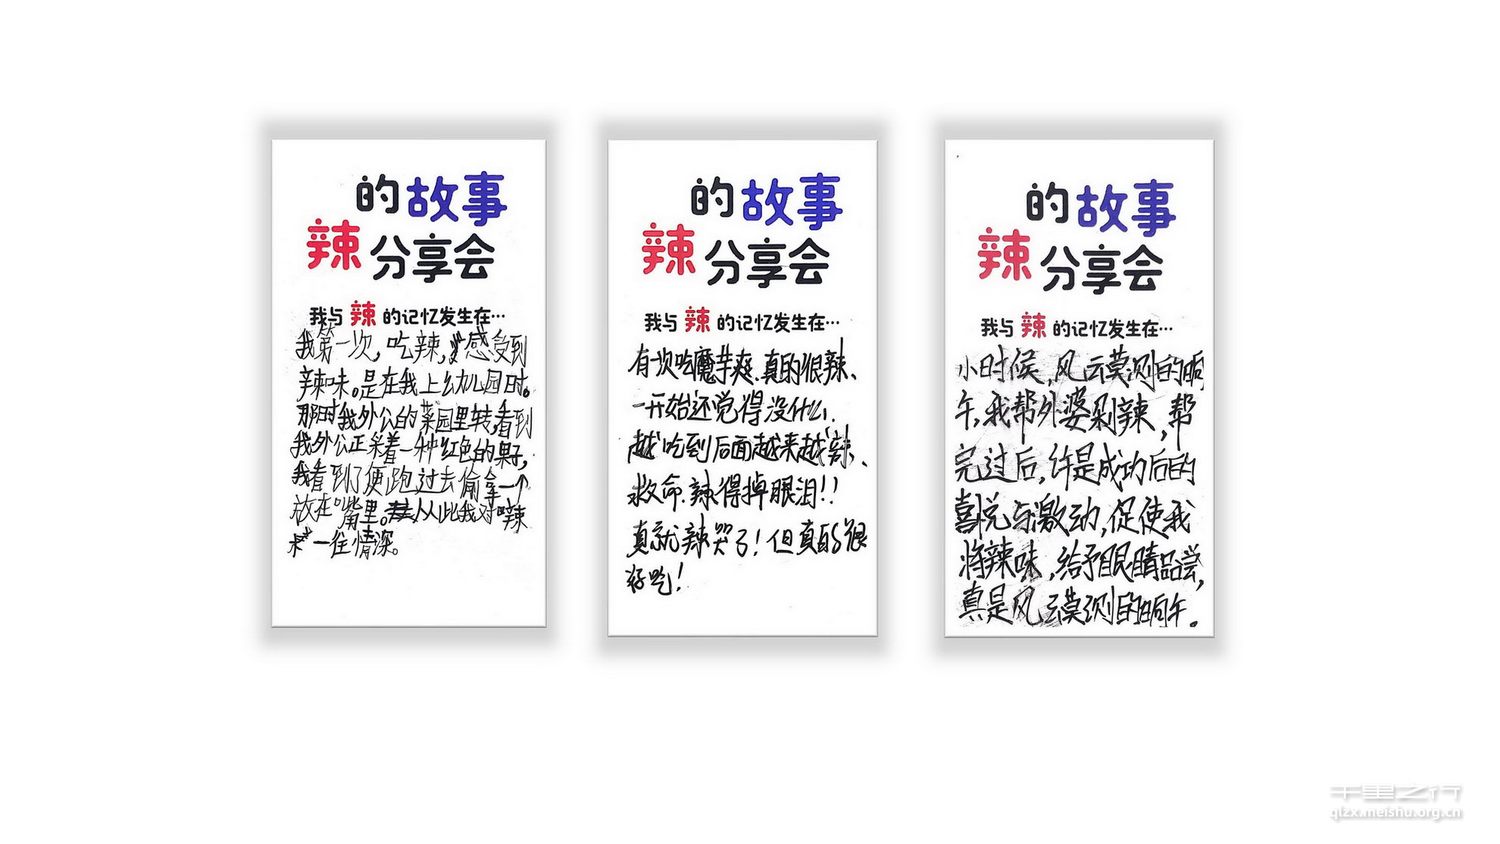 的故事
辣分享会
我与辣的记忆发生在…
我第一次,吃辣,感受到
辣味。是在我上幼儿园时。
那时我外公的菜园里转看到
我外公正采着一种红色的果子,
我看到了便跑过去偷拿一个
放在嘴里。从此我对辣
一往情深。
的故事
辣分享会
我与辣的记忆发生在…
有次吃魔芋爽、真的很辣、
一开始还觉得没什么、
越吃到后面越来越辣、
救命、辣得掉眼泪!!
真就辣哭了!但真的很
好吃!
的故事
辣分享会
我与辣的记忆发生在…
小时候,风云莫测的晌
午,我帮外婆剁辣,帮
完过后,许是成功后的
喜悦与激动,促使我
将辣味,给予眼睛品尝,
真是风云莫测的晌午。
千里之行
qlzx.meishu.org.cn